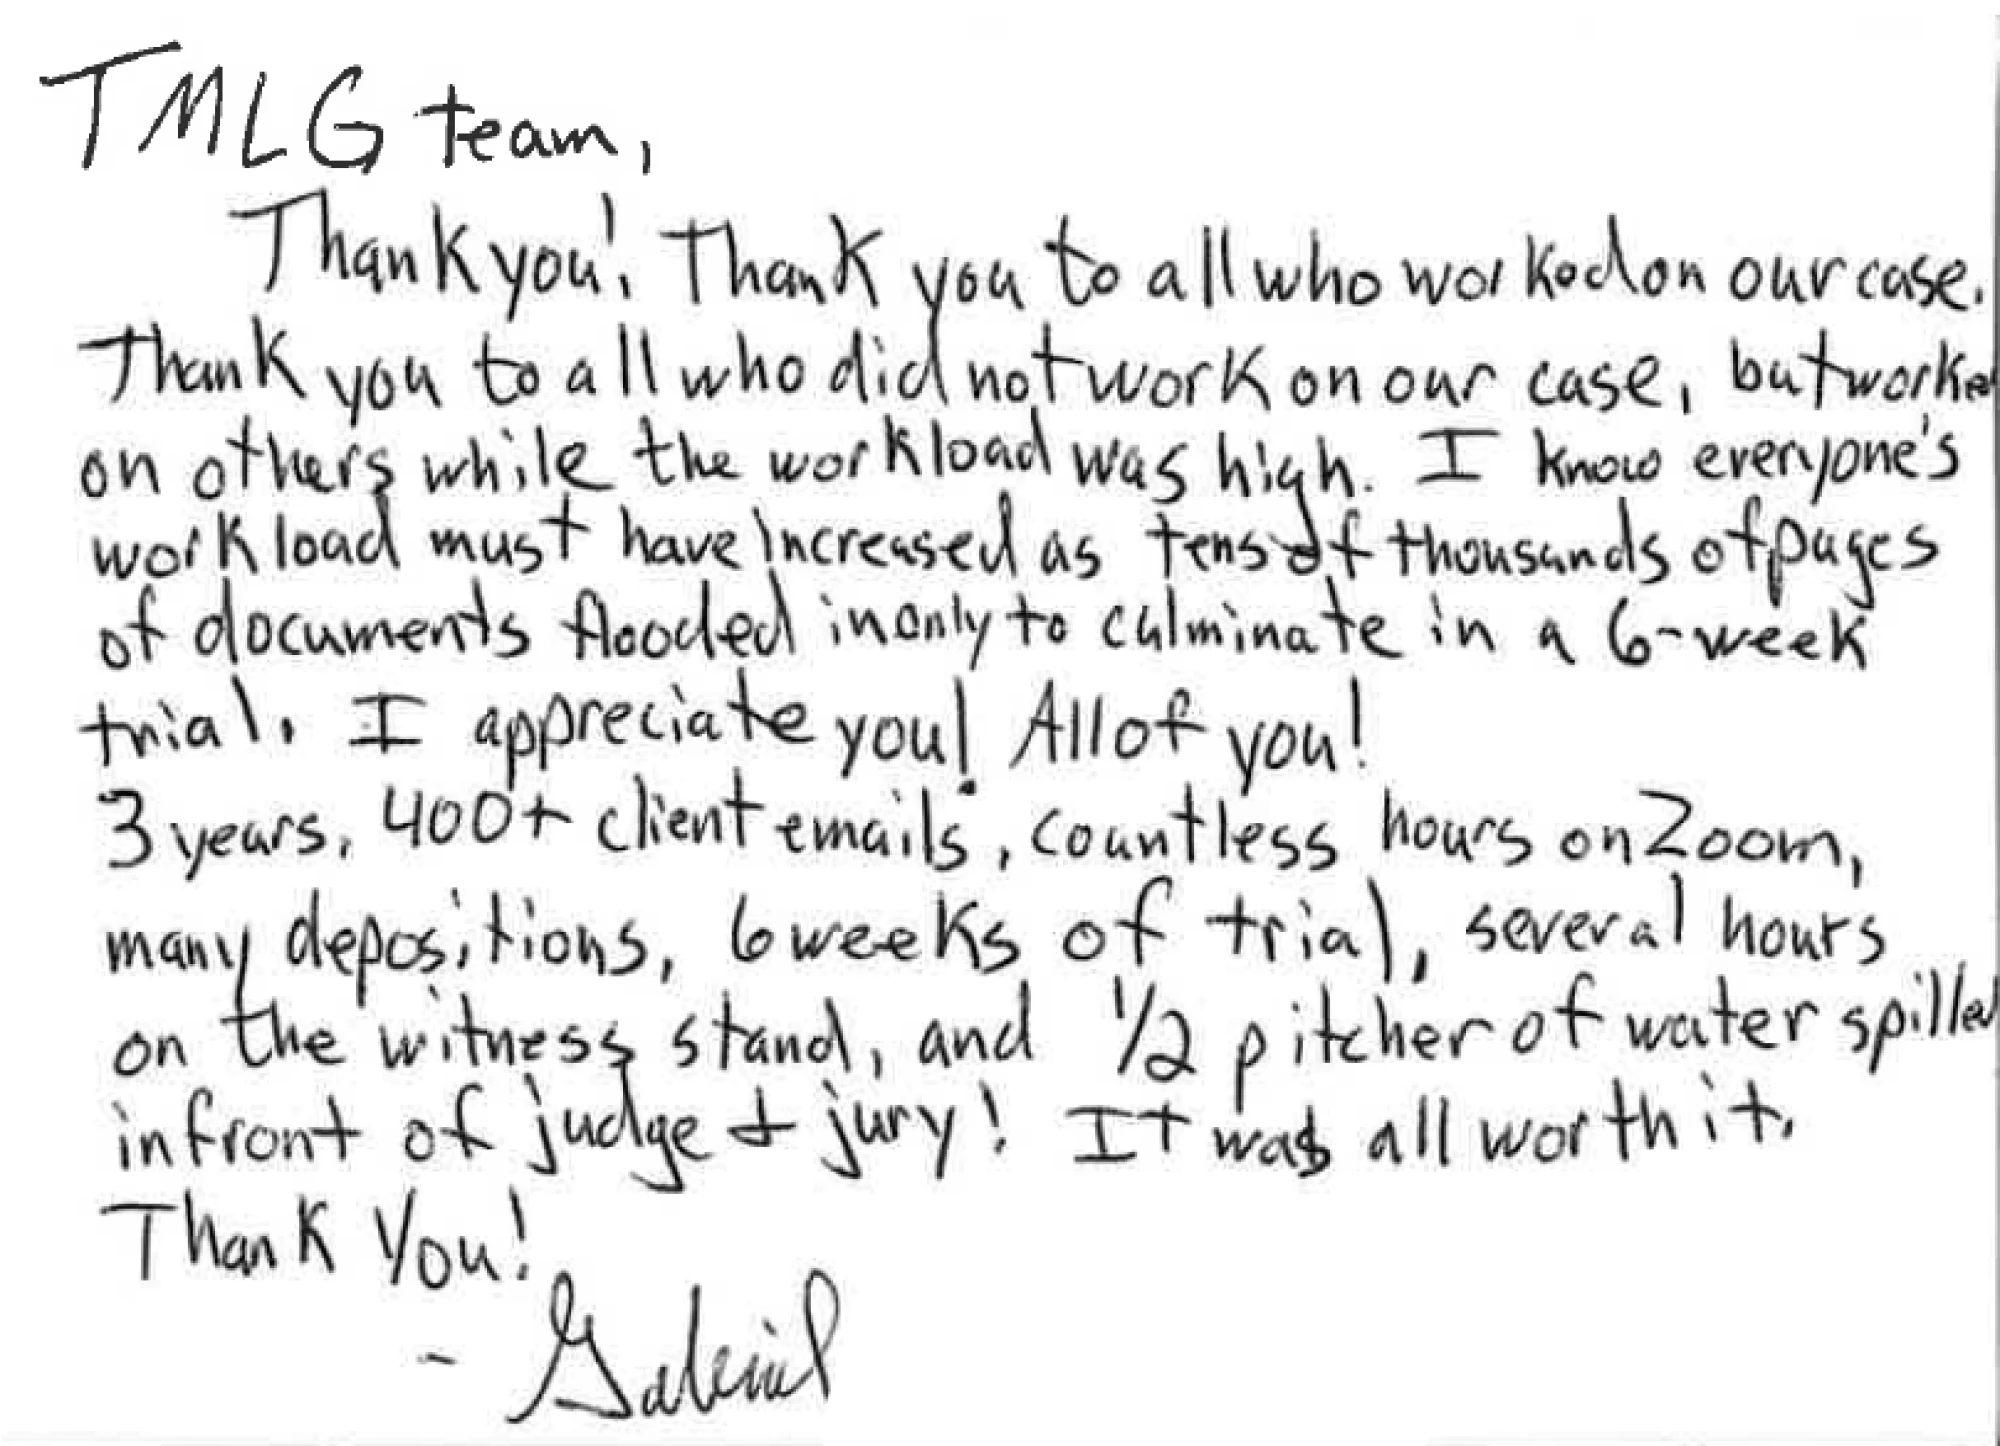 TMLG team,
Thank you! Thank you to all who worked on our case.
Thank you to all who did not work on our case, but worked
on others while the workload was high. I know everyone's
workload must have increased as tens of thousands of pages
of documents flooded in only to culminate in a 6-week
trial. I appreciate you! All of you!
3 years, 400+ client emails, countless hours on Zoom,
many depositions, 6 weeks of trial, several hours
on the witness stand, and 1/2 pitcher of water spilled
in front of judge + jury! It was all worth it.
Thank You!
- Gabriel